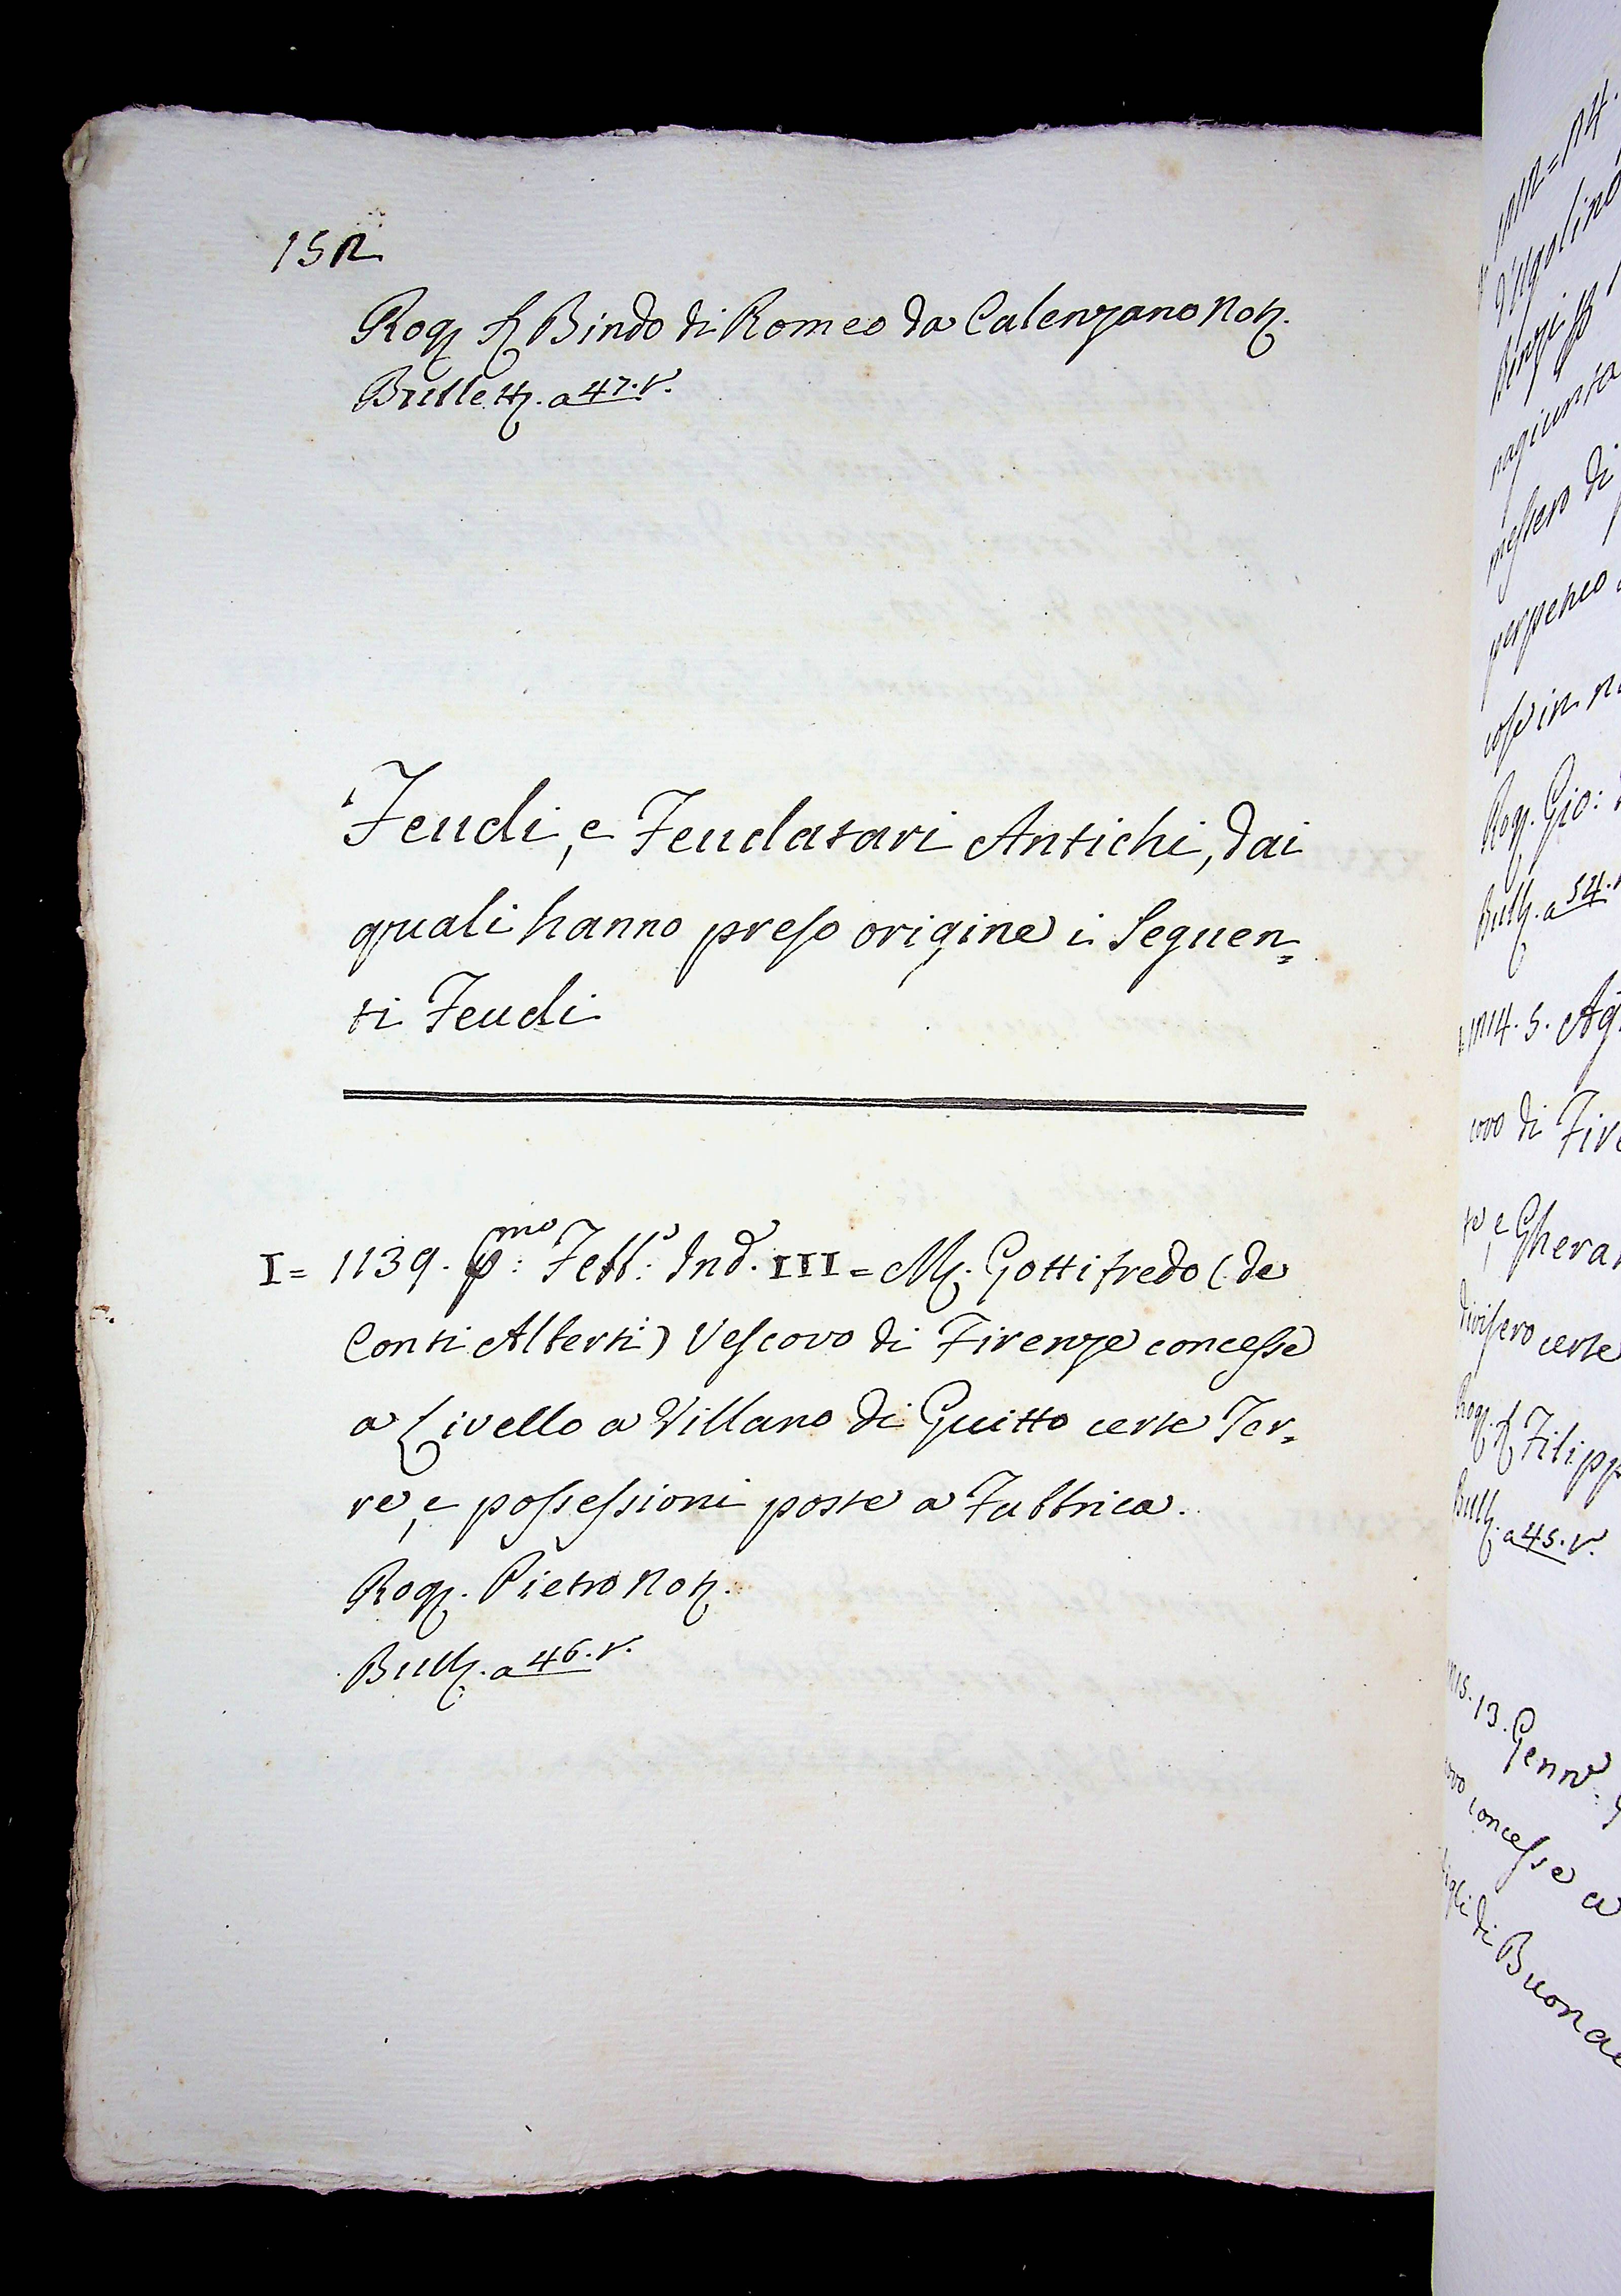 152
Rog. S. Bindo di Romeo da Calenzano Not.
Bullett. a 47. v.
Feudi, e Feudatari Antichi, dai
quali hanno preso origine i Seguen=
ti Feudi
I = 1139. p.mo Febb.o Ind. III = M. Gottifredo (de
Conti Alberti) Vescovo di Firenze concesse
a Livello a Villano di Guitto certe Ter=
re, e possessioni poste a Fabbrica.
Rog. Pietro Not.
Bull. a 46. v.
d'Ugolino
messero di
perpetuo
cose in
Rog. Gio:
Bull. a 54.
1214. 5. Ag
covo di Fire
e Gherar
divisero certe
Rog. S. Filipp
Bull. a 45. v.
13. Genn.
concesse a
figli di Buona